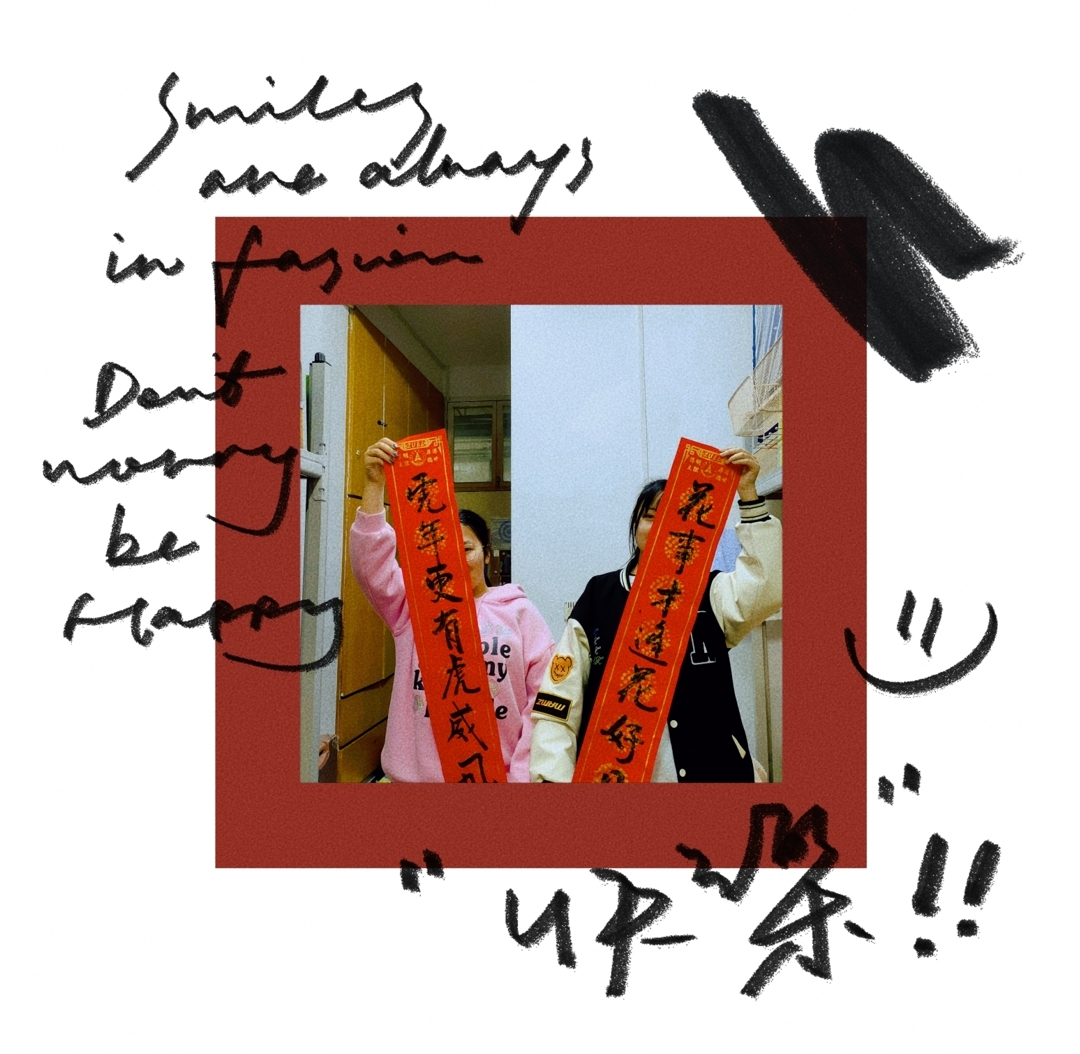 Smiles
are always
in fasion
Don't
worry
be
Happy
虎年更有虎威风
花事才逢花好
ple
k my
A
!!